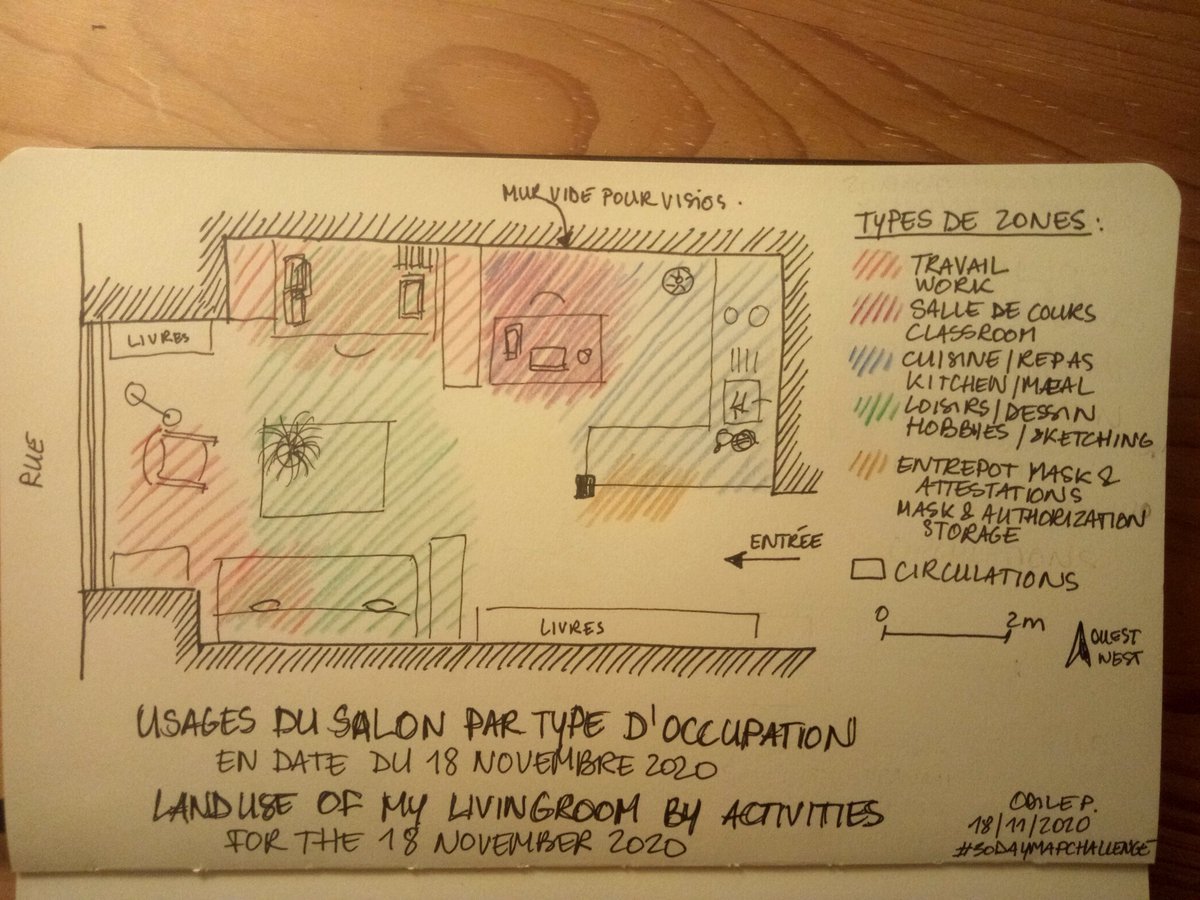 MUR VIDE POUR VISIOS.
LIVRES
RUE
ENTRÉE
LIVRES
TYPES DE ZONES:
TRAVAIL
WORK
SALLE DE COURS
CLASSROOM
CUISINE/REPAS
KITCHEN/MEAL
LOISIRS/DESSIN
HOBBYES/SKETCHING
ENTREPOT MASK &
ATTESTATIONS
MASK & AUTHORIZATION
STORAGE
CIRCULATIONS
0 2m
OUEST
NEST
USAGES DU SALON PAR TYPE D'OCCUPATION
EN DATE DU 18 NOVEMBRE 2020
LANDUSE OF MY LIVINGROOM BY ACTIVITIES
FOR THE 18 NOVEMBER 2020
ODILE P.
18/11/2020
#30DAYMAPCHALLENGE